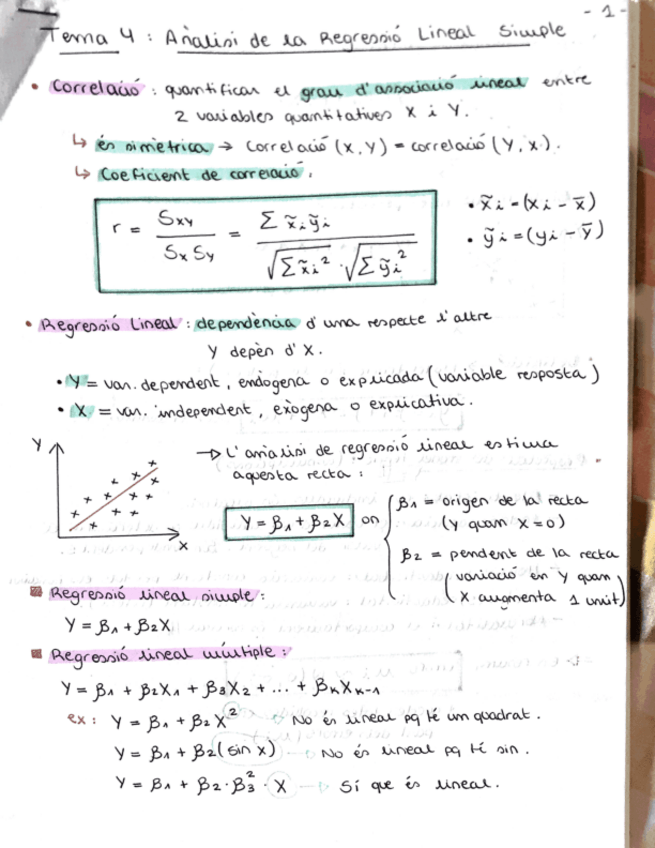 - 1 -
Tema 4 : Anàlisi de la Regressió Lineal Simple
• Correlació : quantificar el grau d'associació lineal entre
2 variables quantitatives X i Y.
↳ és simètrica → Correlació (X,Y) = correlació (Y,X).
↳ Coeficient de correlació.
r = Sxy / Sx Sy = Σ x̃i ỹi / √Σ x̃i² · √Σ ỹi²
• x̃i = (xi - x̄)
• ỹi = (yi - ȳ)
• Regressió Lineal : dependència d'una respecte l'altre
Y depèn d'X.
• Y = var. dependent, endògena o explicada (variable resposta)
• X = var. independent, exògena o explicativa.
Y
X
→ L'anàlisi de regressió lineal estima
aquesta recta :
Y = β1 + β2X on
β1 = origen de la recta
(Y quan X = 0)
β2 = pendent de la recta
(variació en Y quan
X augmenta 1 unit)
Regressió lineal simple :
Y = β1 + β2X
Regressió lineal múltiple :
Y = β1 + β2X1 + β3X2 + ... + βkXk-1
ex : Y = β1 + β2X² → No és lineal pq té un quadrat.
Y = β1 + β2(sin x) → No és lineal pq té sin.
Y = β1 + β2·β3²·X → Sí que és lineal.